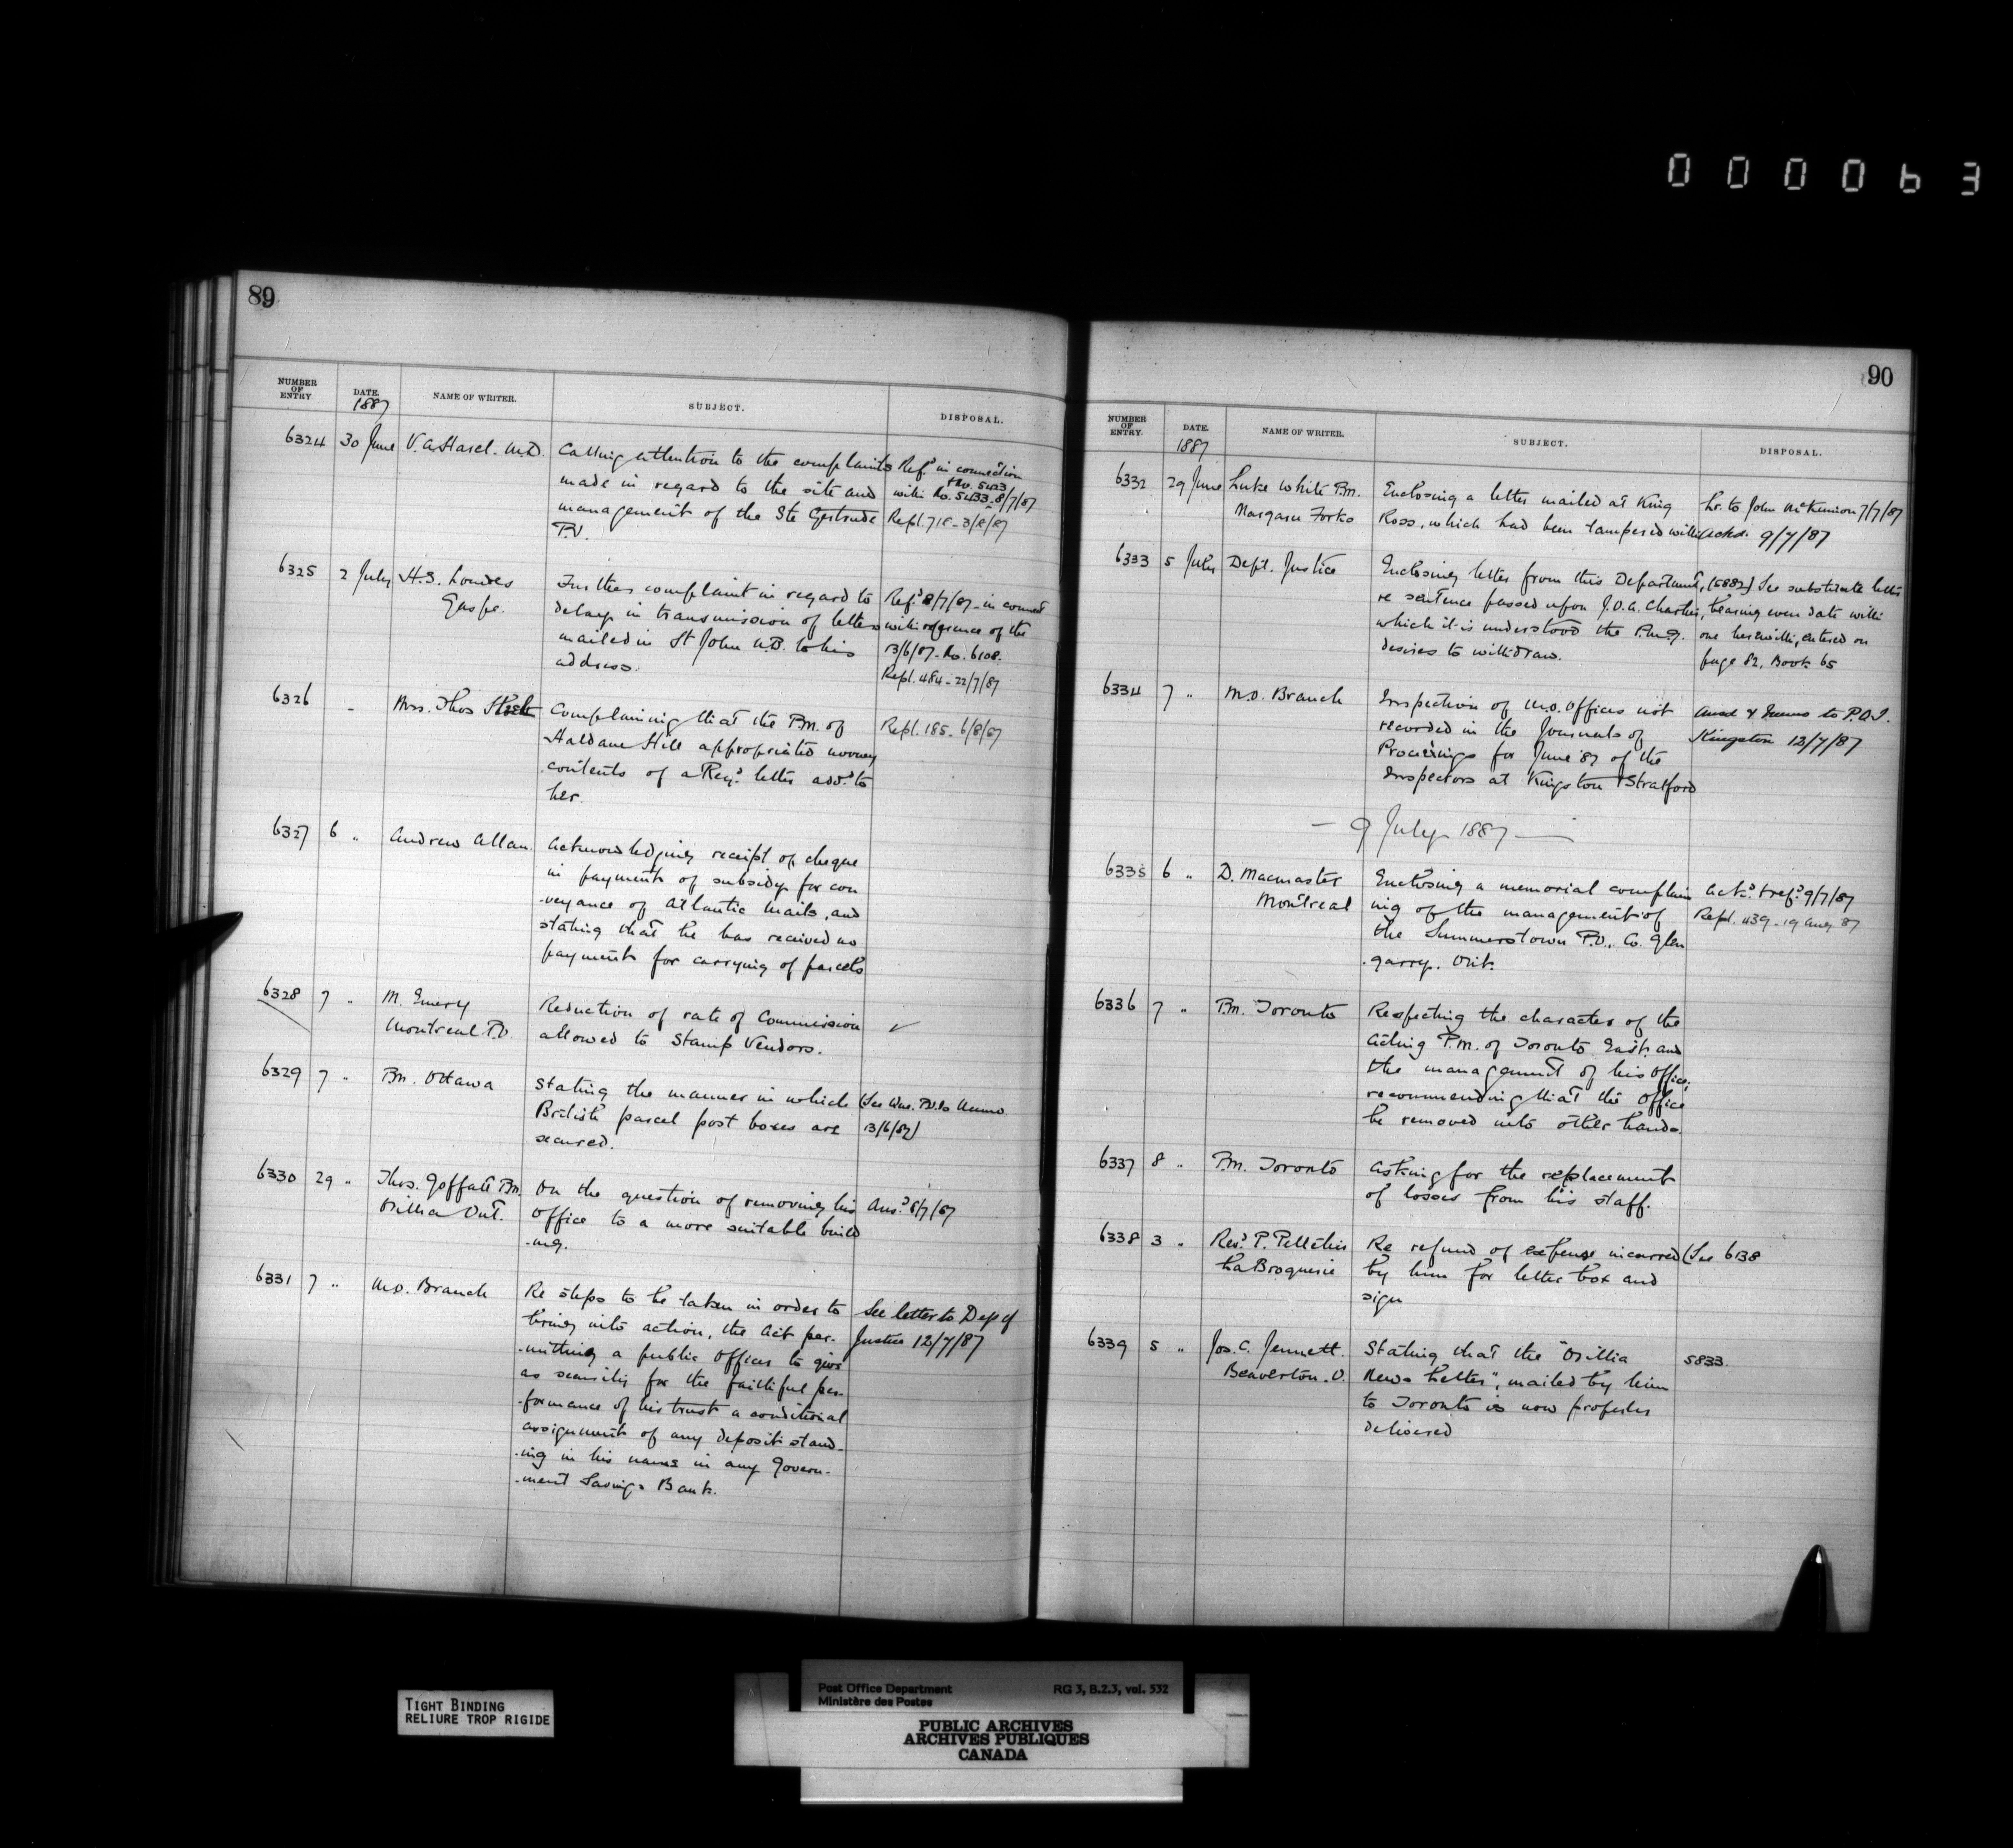 000063
89
NUMBER OF ENTRY
DATE.
NAME OF WRITER.
SUBJECT.
DISPOSAL.
1887
6324 30 June V. A. Harel. M.D. Calling attention to the complaints Ref.d in connection
No. 5423
made in regard to the site and with No. 5433. 8/7/87
management of the Ste Gertrude Repl. 718 - 3/8/87
P.O.
6325 2 July H.S. Lowdes Further complaint in regard to Ref.d 8/7/87 in connect
Gaspe. delay in transmission of letters with reference of the
mailed in St John N.B. to his 13/6/87 - No. 6108.
address. Repl. 484 - 22/7/87
6326 Mrs. Thos Complaining that the P.M. of Repl. 185 - 6/8/87
Haldane Hill appropriated money
contents of a Reg.d letter add.d to
her.
6327 6 " Andrew Allan. Acknowledging receipt of cheque
in payment of subsidy for con
-veyance of Atlantic Mails, and
stating that he has received no
payment for carrying of parcels
6328 7 " M. Emery Reduction of rate of Commission ✓
Montreal P.O. allowed to Stamp Vendors.
6329 7 " P.M. Ottawa Stating the manner in which (See P.O. Memo
British parcel post boxes are 13/6/87)
secured.
6330 29 " Thos. Goffatt P.M. On the question of removing his Ans.d 8/7/87
Orillia Ont. Office to a more suitable build
-ing.
6331 7 " M.O. Branch Re steps to be taken in order to See letter to Dep of
bring into action, the Act per- Justice 12/7/87
-mitting a public Officer to give
as security for the faithful per-
-formance of his trust a conditional
assignment of any deposit stand-
-ing in his name in any Govern-
-ment Savings Bank.
90
NUMBER OF ENTRY.
DATE.
NAME OF WRITER.
SUBJECT.
DISPOSAL.
1887
6332 29 June Luke White P.M. Enclosing a letter mailed at King Lr. to John McKinnon 7/7/87
Margaree Forks Ross, which had been tampered with Ackd. 9/7/87
6333 5 July Dept. Justice Enclosing letter from this Department, (5882) See substitute letter
re sentence passed upon J.O.A. Chartier, bearing even date with
which it is understood the P.M.G. one herewith, entered on
desires to withdraw. page 82, Book 65
6334 7 " M.O. Branch Inspection of M.O. Offices not Ansd & Memo to P.O.I.
recorded in the Journals of Kingston 12/7/87
Proceedings for June '87 of the
Inspectors at Kingston & Stratford
— 9 July 1887 —
6335 6 " D. Macmaster Enclosing a memorial complain Ack.d & ref.d 9/7/87
Montreal ing of the management of Repl. 439 - 19 Aug 87
the Summerstown P.O., Co. Glen
-garry. Ont.
6336 7 " P.M. Toronto Respecting the character of the
Acting P.M. of Toronto East. and
the management of his Office;
recommending that the Office
be removed into other hands.
6337 8 " P.M. Toronto Asking for the replacement
of losses from his staff.
6338 3 " Rev.d P. Pelletier Re refund of expense incurred (See 6138
La Broquerie by him for letter box and
sign
6339 5 " Jos. C. Jennett. Stating that the "Orillia 5833.
Beaverton. O. News Letter", mailed by him
to Toronto is now properly
delivered
TIGHT BINDING
RELIURE TROP RIGIDE
Post Office Department RG 3, B.2.3, vol. 532
Ministère des Postes
PUBLIC ARCHIVES
ARCHIVES PUBLIQUES
CANADA